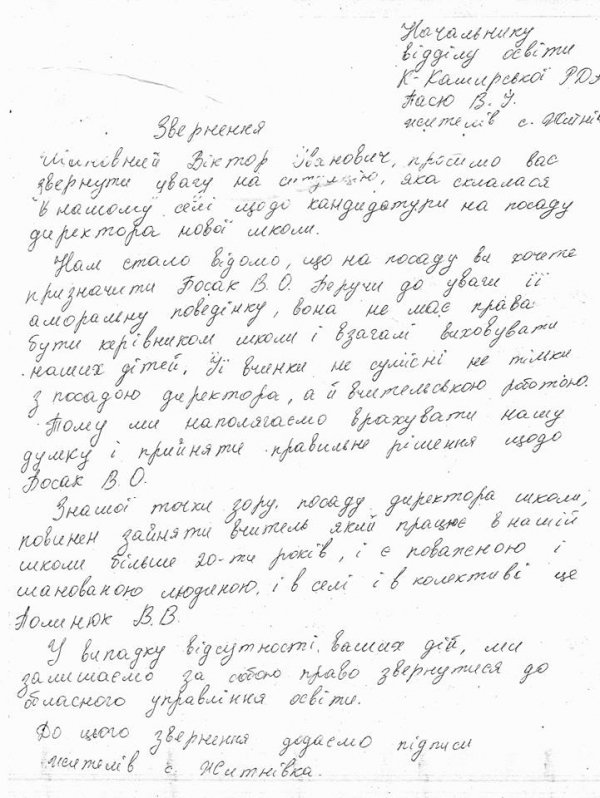 Начальнику
відділу освіти
К-Каширської РДА
Пасю В. І.
жителів с. Житнів
Звернення
Шановний Віктор Іванович, просимо вас
звернути увагу на ситуацію, яка склалася
в нашому селі щодо кандидатури на посаду
директора нової школи.
Нам стало відомо, що на посаду ви хочете
призначити Босак В.О. Беручи до уваги її
аморальну поведінку, вона не має права
бути керівником школи і взагалі виховувати
наших дітей. Її вчинки не сумісні не тільки
з посадою директора, а й вчительською роботою.
Тому ми наполягаємо врахувати нашу
думку і прийняти правильне рішення щодо
Босак В.О.
З нашої точки зору, посаду директора школи,
повинен зайняти вчитель який працює в нашій
школі більше 20-ти років, і є поважною і
шанованою людиною, і в селі і в колективі це
Полинюк В.В.
У випадку відсутності ваших дій, ми
залишаємо за собою право звернутися до
обласного управління освіти.
До цього звернення додаємо підписи
жителів с. Житнівка.